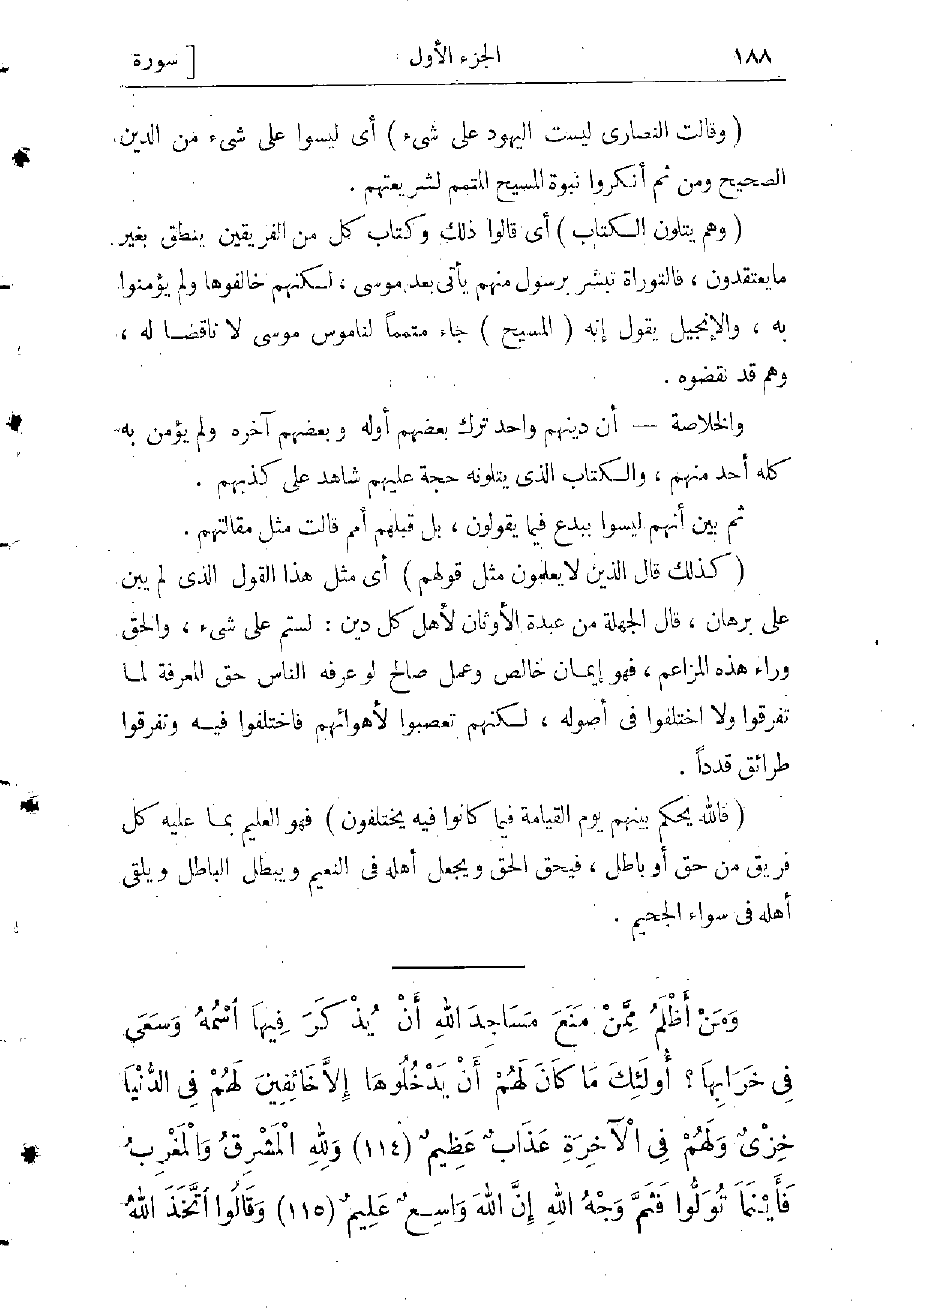 ١٨٨ الجزء الأول [ سورة
( وقالت النصارى ليست اليهود على شىء ) أى ليسوا على شىء من الدين
الصحيح ومن ثم أنكروا نبوة المسيح المتمم لشريعتهم .
( وهم يتلون الكتاب ) أى قالوا ذلك وكتاب كل من الفريقين ينطق بغير
مايعتقدون ، فالتوراة تبشر برسول منهم يأتى بعد موسى ، لكنهم خالفوها ولم يؤمنوا
به ، والإنجيل يقول إنه ( المسيح ) جاء متمماً لناموس موسى لا ناقضا له ،
وهم قد نقضوه .
والخلاصة — أن دينهم واحد ترك بعضهم أوله وبعضهم آخره ولم يؤمن به
كله أحد منهم ، والكتاب الذى يتلونه حجة عليهم شاهد على كذبهم .
ثم بين أنهم ليسوا ببدع فيما يقولون ، بل قبلهم أمم قالت مثل مقالتهم .
( كذلك قال الذين لايعلمون مثل قولهم ) أى مثل هذا القول الذى لم يبن
على برهان ، قال الجهلة من عبدة الأوثان لأهل كل دين : لستم على شىء ، والحق
وراء هذه المزاعم ، فهو إيمان خالص وعمل صالح لو عرفه الناس حق المعرفة لما
تفرقوا ولا اختلفوا فى أصوله ، لكنهم تعصبوا لأهوائهم فاختلفوا فيه وتفرقوا
طرائق قدداً .
( فالله يحكم بينهم يوم القيامة فيما كانوا فيه يختلفون ) فهو العليم بما عليه كل
فريق من حق أو باطل ، فيحق الحق ويجعل أهله فى النعيم ويبطل الباطل ويلقى
أهله فى سواء الجحيم .
وَمَنْ أَظْلَمُ مِمَّنْ مَنَعَ مَسَاجِدَ اللهِ أَنْ يُذْكَرَ فِيهَا اسْمُهُ وَسَعَى
فِى خَرَابِهَا ؟ أُولَئِكَ مَا كَانَ لَهُمْ أَنْ يَدْخُلُوهَا إِلاَّ خَائِفِينَ لَهُمْ فِى الدُّنْيَا
خِزْىٌ وَلَهُمْ فِى الْآخِرَةِ عَذَابٌ عَظِيمٌ (١١٤) وَلِلهِ الْمَشْرِقُ وَالْمَغْرِبُ
فَأَيْنَمَا تُوَلُّوا فَثَمَّ وَجْهُ اللهِ إِنَّ اللهَ وَاسِعٌ عَلِيمٌ (١١٥) وَقَالُوا اتَّخَذَ اللهُ